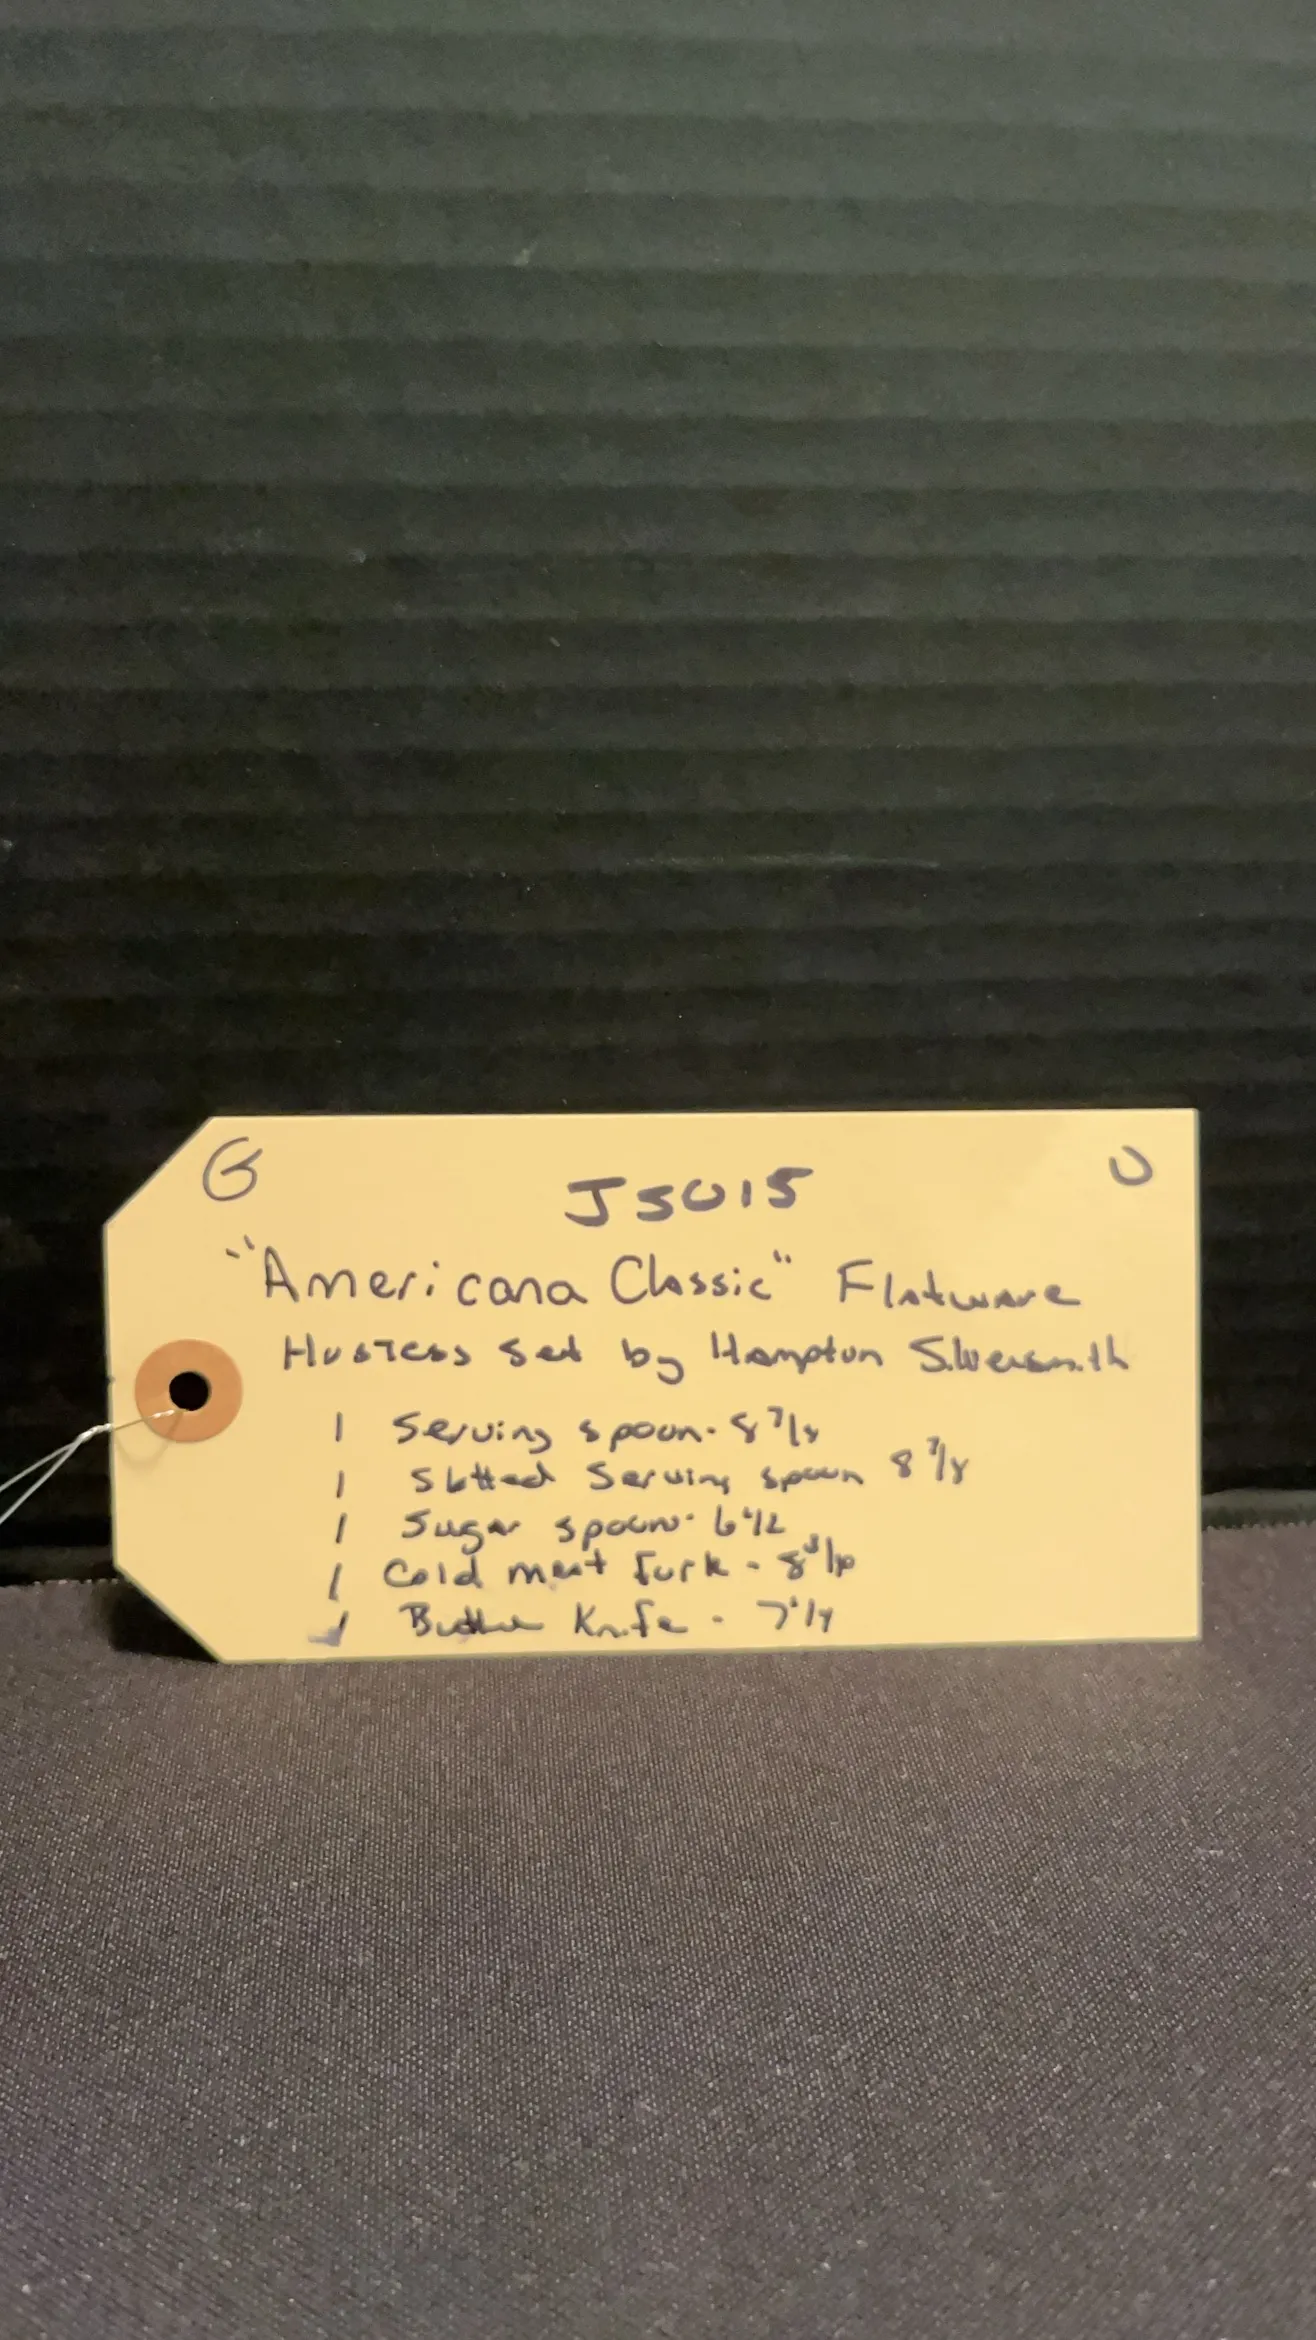 G J5015 U
"Americana Classic" Flatware
Hostess Set by Hampton Silversmith
1 Serving spoon - 8 7/8
1 Slotted Serving spoon 8 7/8
1 Sugar spoon - 6 1/2
1 Cold meat fork -
1 Butter Knife - 7 1/4